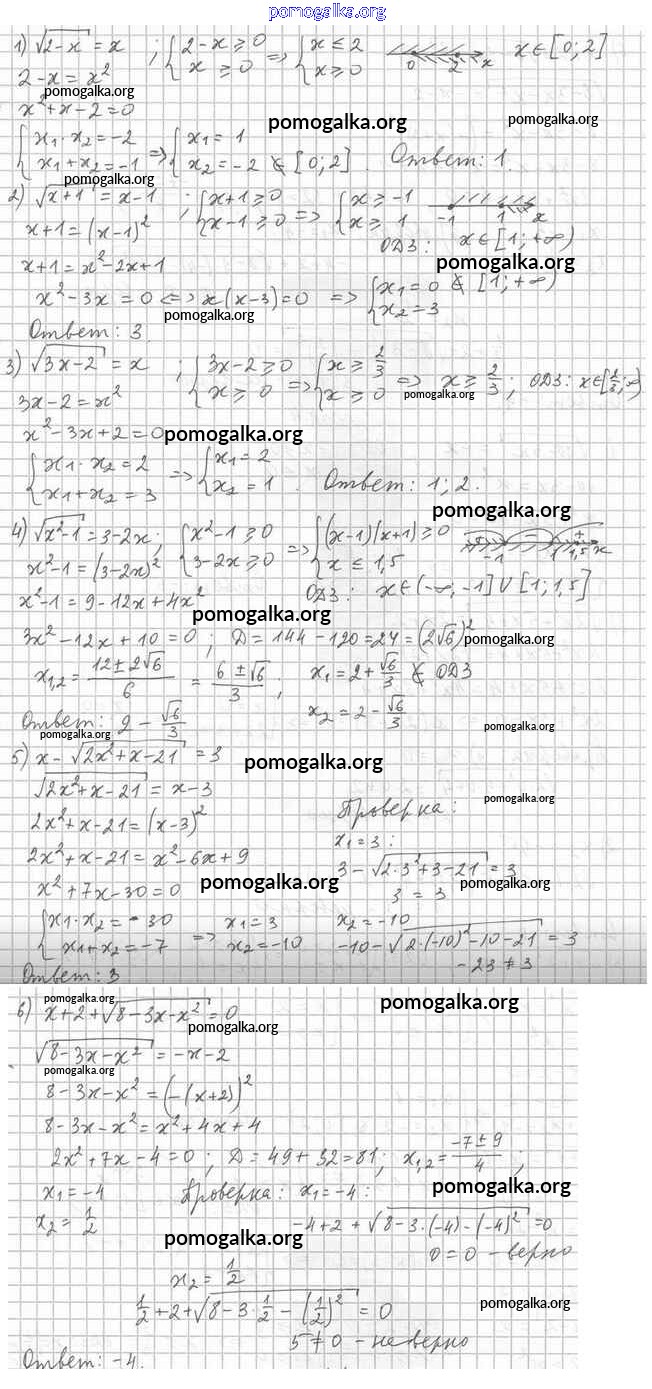 pomogalka.org
1) √(2-x) = x ; {2-x ≥ 0, x ≥ 0 => {x ≤ 2, x ≥ 0 0 2 x x∈[0;2]
2-x = x²
pomogalka.org
x²+x-2=0
pomogalka.org pomogalka.org
{x₁·x₂=-2, x₁+x₂=-1 => {x₁=1, x₂=-2 ∉ [0;2]. Ответ: 1.
pomogalka.org
2) √(x+1) = x-1 ; {x+1 ≥ 0, x-1 ≥ 0 => {x ≥ -1, x ≥ 1 -1 1 x
x+1=(x-1)² ОДЗ: x∈[1;+∞)
x+1=x²-2x+1
pomogalka.org
x²-3x=0 <=> x(x-3)=0 => {x₁=0 ∉ [1;+∞), x₂=3
pomogalka.org
Ответ: 3.
3) √(3x-2) = x ; {3x-2≥0, x ≥ 0 => {x ≥ 2/3, x ≥ 0 => x ≥ 2/3 ; ОДЗ: x∈[2/3;∞)
pomogalka.org
3x-2=x²
x²-3x+2=0
pomogalka.org
{x₁·x₂=2, x₁+x₂=3 => {x₁=2, x₂=1. Ответ: 1; 2.
pomogalka.org
4) √(x²-1) = 3-2x; {x²-1≥0, 3-2x≥0 => {(x-1)(x+1)≥0, x ≤ 1,5 + - + -1 1 1,5 x
x²-1=(3-2x)²
x²-1=9-12x+4x² ОДЗ: x∈(-∞,-1]∪[1;1,5]
pomogalka.org
3x²-12x+10=0; D=144-120=24=(2√6)²
pomogalka.org
x₁,₂=(12±2√6)/6=(6±√6)/3; x₁=2+√6/3 ∉ ОДЗ
x₂=2-√6/3
Ответ: 2-√6/3
pomogalka.org pomogalka.org
5) x-√(2x²+x-21)=3
pomogalka.org
√(2x²+x-21)=x-3
pomogalka.org
Проверка:
2x²+x-21=(x-3)²
x₁=3:
2x²+x-21=x²-6x+9
3-√(2·3²+3-21)=3
x²+7x-30=0
pomogalka.org pomogalka.org
3=3
{x₁·x₂=-30, x₁+x₂=-7 => x₁=3, x₂=-10
x₂=-10
-10-√(2·(-10)²-10-21)=3
-23≠3
Ответ: 3
pomogalka.org pomogalka.org
6) x+2+√(8-3x-x²)=0
pomogalka.org
√(8-3x-x²)=-x-2
pomogalka.org
8-3x-x²=(-(x+2))²
8-3x-x²=x²+4x+4
2x²+7x-4=0; D=49+32=81; x₁,₂=(-7±9)/4;
x₁=-4 Проверка: x₁=-4:
pomogalka.org
x₂=1/2 -4+2+√(8-3·(-4)-(-4)²)=0
pomogalka.org
0=0 - верно
x₂=1/2
1/2+2+√(8-3·1/2-(1/2)²)=0
pomogalka.org
5≠0 - неверно
Ответ: -4.